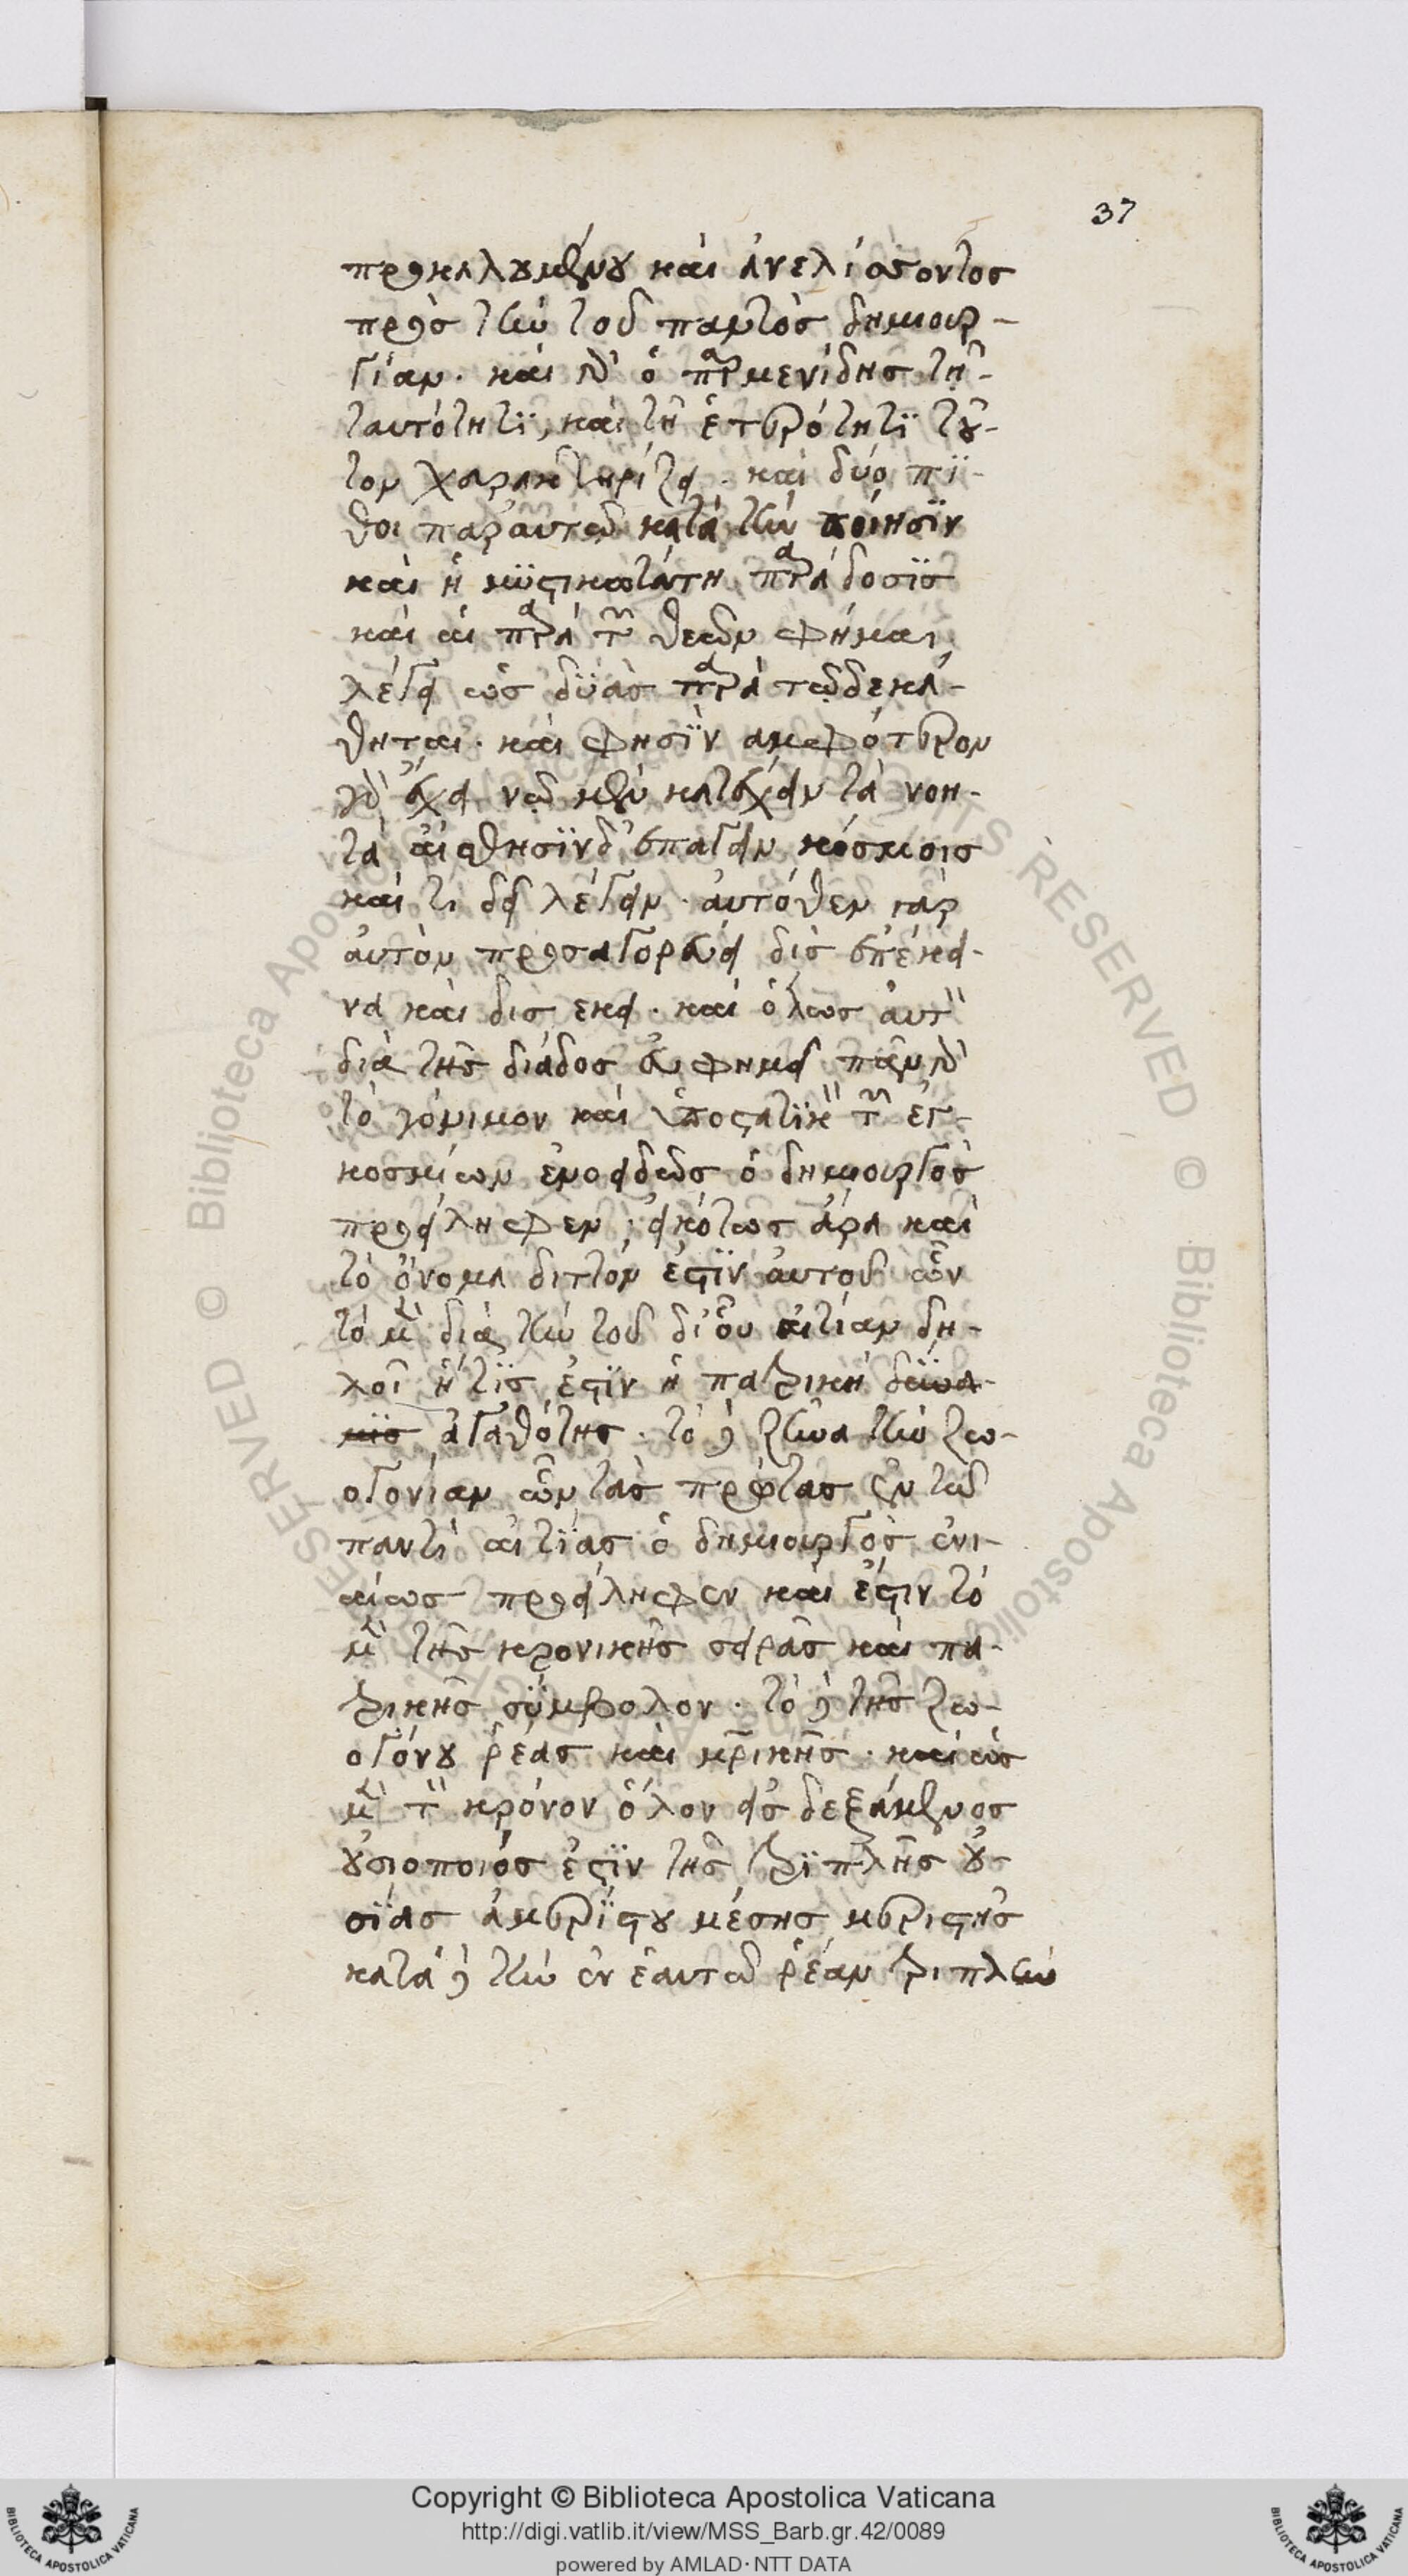 37
προκαλουμένου καὶ ἀνελίσσοντος
πρὸς τὴν τοῦ παντὸς δημιουρ-
γίαν. καὶ γὰρ ὁ παρμενίδης τῆ
ταυτότητι, καὶ τῆ ἑτερότητι τοῦ-
τον χαρακτηρίζει. καὶ δύο πί-
θοι παρ' αὐτῶ κατὰ τὴν ποίησιν
καὶ ἡ μυστικωτάτη παράδοσις
καὶ αἱ παρὰ τῶν θεῶν φήμαι,
λέγει ὡς δυὰς παρὰ τῶδε κά-
θηται. καὶ φησὶν ἀμφότερον
γὰρ ἔχει νῶ μὲν κατέχειν τὰ νοη-
τὰ αἴσθησιν δ' ἐπάγειν κόσμοις
καὶ τί δεῖ λέγειν. αὐτόθεν γὰρ
αὐτὸν προσαγορεύει δὶς ἐπέκει-
να καὶ δὶς ἐκεῖ. καὶ ὅλως αὐτὸν
διὰ τῆς διάδος εὐφημεῖ πᾶν γὰρ
τὸ γόνιμον καὶ ὑποστατικὸν τῶν ἐγ-
κοσμίων ἑνοειδῶς ὁ δημιουργὸς
προείληφεν, εἰκότως ἄρα καὶ
τὸ ὄνομα διττόν ἐστὶν αὐτοῦ ὧν
τὸ μὲν διὰ τὴν τοῦ δι' οὗ αἰτίαν δη-
λοῖ ἥτις ἐστὶν ἡ πατρικὴ δύνα-
μις ἀγαθότης. τὸ δὲ ζῆνα τὴν ζω-
ογονίαν ὧν τὰς πρώτας ἐν τῶ
παντὶ αἰτίας ὁ δημιουργὸς ἑνι-
αίως προείληφεν καὶ ἔστιν τὸ
μὲν τῆς κρονικῆς σειρᾶς καὶ πα-
τρικῆς σύμβολον. τὸ δὲ τῆς ζω-
ογόνου ῥέας καὶ μητρικῆς. καὶ ὡς
μὲν τὸν κρόνον ὅλον εἰσδεξάμενος
οὐσιοποιός ἐστὶν τῆς τριπλῆς οὐ-
σίας ἀμερίστου μέσης μεριστῆς
κατὰ δὲ τὴν ἐν ἑαυτῶ ῥέαν τριπλῆν
Copyright © Biblioteca Apostolica Vaticana
http://digi.vatlib.it/view/MSS_Barb.gr.42/0089
powered by AMLAD·NTT DATA